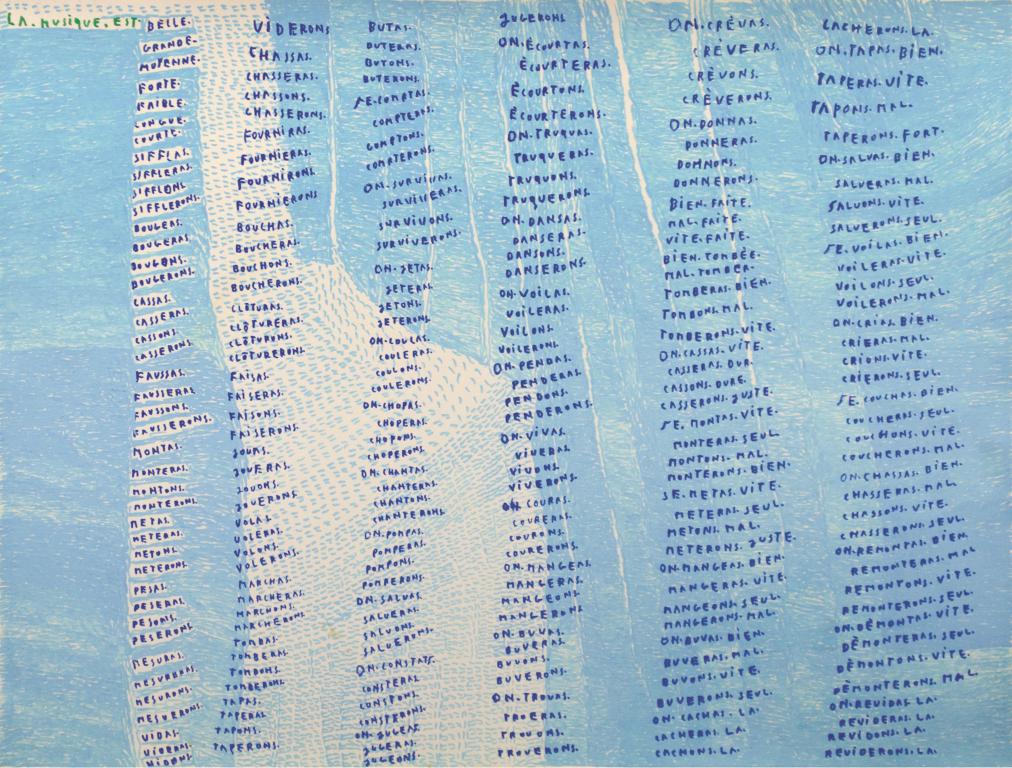 LA.MUSIQUE.EST.
BELLE.
GRANDE.
MOYENNE.
FORTE.
FAIBLE.
LONGUE.
COURTE.
SIFFLAS.
SIFFLERAS.
SIFFLONS.
SIFFLERONS.
BOUGEAS.
BOUGERAS.
BOUGONS.
BOUGERONS.
CASSAS.
CASSERAS.
CASSONS.
CASSERONS.
FAUSSAS.
FAUSSERAS.
FAUSSONS.
FAUSSERONS.
MONTAS.
MONTERAS.
MONTONS.
MONTERONS.
METAS.
METERAS.
METONS.
METERONS.
PESAS.
PESERAS.
PESONS.
PESERONS.
MESURAS.
MESURERAS.
MESURONS.
MESURERONS.
VIDAS.
VIDERAS.
VIDONS.
VIDERONS
CHASSAS.
CHASSERAS.
CHASSONS.
CHASSERONS.
FOURNIRAS.
FOURNIERAS.
FOURNIRONS.
FOURNIERONS
BOUCHAS.
BOUCHERAS.
BOUCHONS.
BOUCHERONS.
CLÔTURAS.
CLÔTURERAS.
CLÔTURONS.
CLÔTURERONS.
FAISAS.
FAISERAS.
FAISONS.
FAISERONS.
JOUAS.
JOUERAS.
JOUONS.
JOUERONS.
VOLAS.
VOLERAS.
VOLONS.
VOLERONS.
MARCHAS.
MARCHERAS.
MARCHONS.
MARCHERONS.
TOMBAS.
TOMBERAS.
TOMBONS.
TOMBERONS.
TAPAS.
TAPERAS.
TAPONS.
TAPERONS.
BUTAS.
BUTERAS.
BUTONS.
BUTERONS.
SE.COMPTAS.
COMPTERAS.
COMPTONS.
COMPTERONS.
ON.SURVIVAS.
SURVIVERAS.
SURVIVONS.
SURVIVERONS.
ON.JETAS.
JETERAS.
JETONS.
JETERONS.
ON.COULAS.
COULERAS.
COULONS.
COULERONS.
ON.CHOPAS.
CHOPERAS.
CHOPONS.
CHOPERONS.
ON.CHANTAS.
CHANTERAS.
CHANTONS.
CHANTERONS.
ON.POMPAS.
POMPERAS.
POMPONS.
POMPERONS.
ON.SALUAS.
SALUERAS.
SALUONS.
SALUERONS.
ON.CONSTATS.
CONSTERAS.
CONSTONS.
CONSTERONS.
ON.JUGEAS.
JUGERAS.
JUGEONS.
JUGERONS
ON.ÉCOURTAS.
ÉCOURTERAS.
ÉCOURTONS.
ÉCOURTERONS.
ON.TRUQUAS.
TRUQUERAS.
TRUQUONS.
TRUQUERONS.
ON.DANSAS.
DANSERAS.
DANSONS.
DANSERONS.
ON.VOILAS.
VOILERAS.
VOILONS.
VOILERONS.
ON.PENDAS.
PENDERAS.
PENDONS.
PENDERONS.
ON.VIVAS.
VIVERAS.
VIVONS.
VIVERONS.
ON.COURAS.
COURERAS.
COURONS.
COURERONS.
ON.MANGEAS.
MANGERAS.
MANGEONS.
MANGERONS.
ON.BUVAS.
BUVERAS.
BUVONS.
BUVERONS.
ON.TROUAS.
TROUERAS.
TROUONS.
TROUERONS.
ON.CRÈVAS.
CRÈVERAS.
CRÈVONS.
CRÈVERONS.
ON.DONNAS.
DONNERAS.
DONNONS.
DONNERONS.
BIEN.FAITE.
MAL.FAITE.
VITE.FAITE.
BIEN.TOMBÉE.
MAL.TOMBER.
TOMBERAS.BIEN.
TOMBONS.MAL.
TOMBERONS.VITE.
ON.CASSAS.VITE.
CASSERAS.DUR.
CASSONS.DURE.
CASSERONS.JUSTE.
SE.MONTAS.VITE.
MONTERAS.SEUL.
MONTONS.MAL.
MONTERONS.BIEN.
SE.METAS.VITE.
METERAS.SEUL.
METONS.MAL.
METERONS.JUSTE.
ON.MANGEAS.BIEN.
MANGERAS.VITE.
MANGEONS.SEUL.
MANGERONS.MAL.
ON.BUVAS.BIEN.
BUVERAS.MAL.
BUVONS.VITE.
BUVERONS.SEUL.
ON.CACHAS.LA.
CACHERAS.LA.
CACHONS.LA.
CACHERONS.LA.
ON.TAPAS.BIEN.
TAPERAS.VITE.
TAPONS.MAL.
TAPERONS.FORT.
ON.SALUAS.BIEN.
SALUERAS.MAL.
SALUONS.VITE.
SALUERONS.SEUL.
SE.VOILAS.BIEN.
VOILERAS.VITE.
VOILONS.SEUL.
VOILERONS.MAL.
ON.CRIAS.BIEN.
CRIERAS.MAL.
CRIONS.VITE.
CRIERONS.SEUL.
SE.COUCHAS.BIEN.
COUCHERAS.SEUL.
COUCHONS.VITE.
COUCHERONS.MAL.
ON.CHASSAS.BIEN.
CHASSERAS.MAL
CHASSONS.VITE.
CHASSERONS.SEUL.
ON.REMONTAS.BIEN.
REMONTERAS.MAL
REMONTONS.VITE.
REMONTERONS.SEUL.
ON.DÉMONTAS.VITE.
DÉMONTERAS.SEUL.
DÉMONTONS.VITE.
DÉMONTERONS.MAL.
ON.REVIDAS.LA.
REVIDERAS.LA.
REVIDONS.LA.
REVIDERONS.LA.